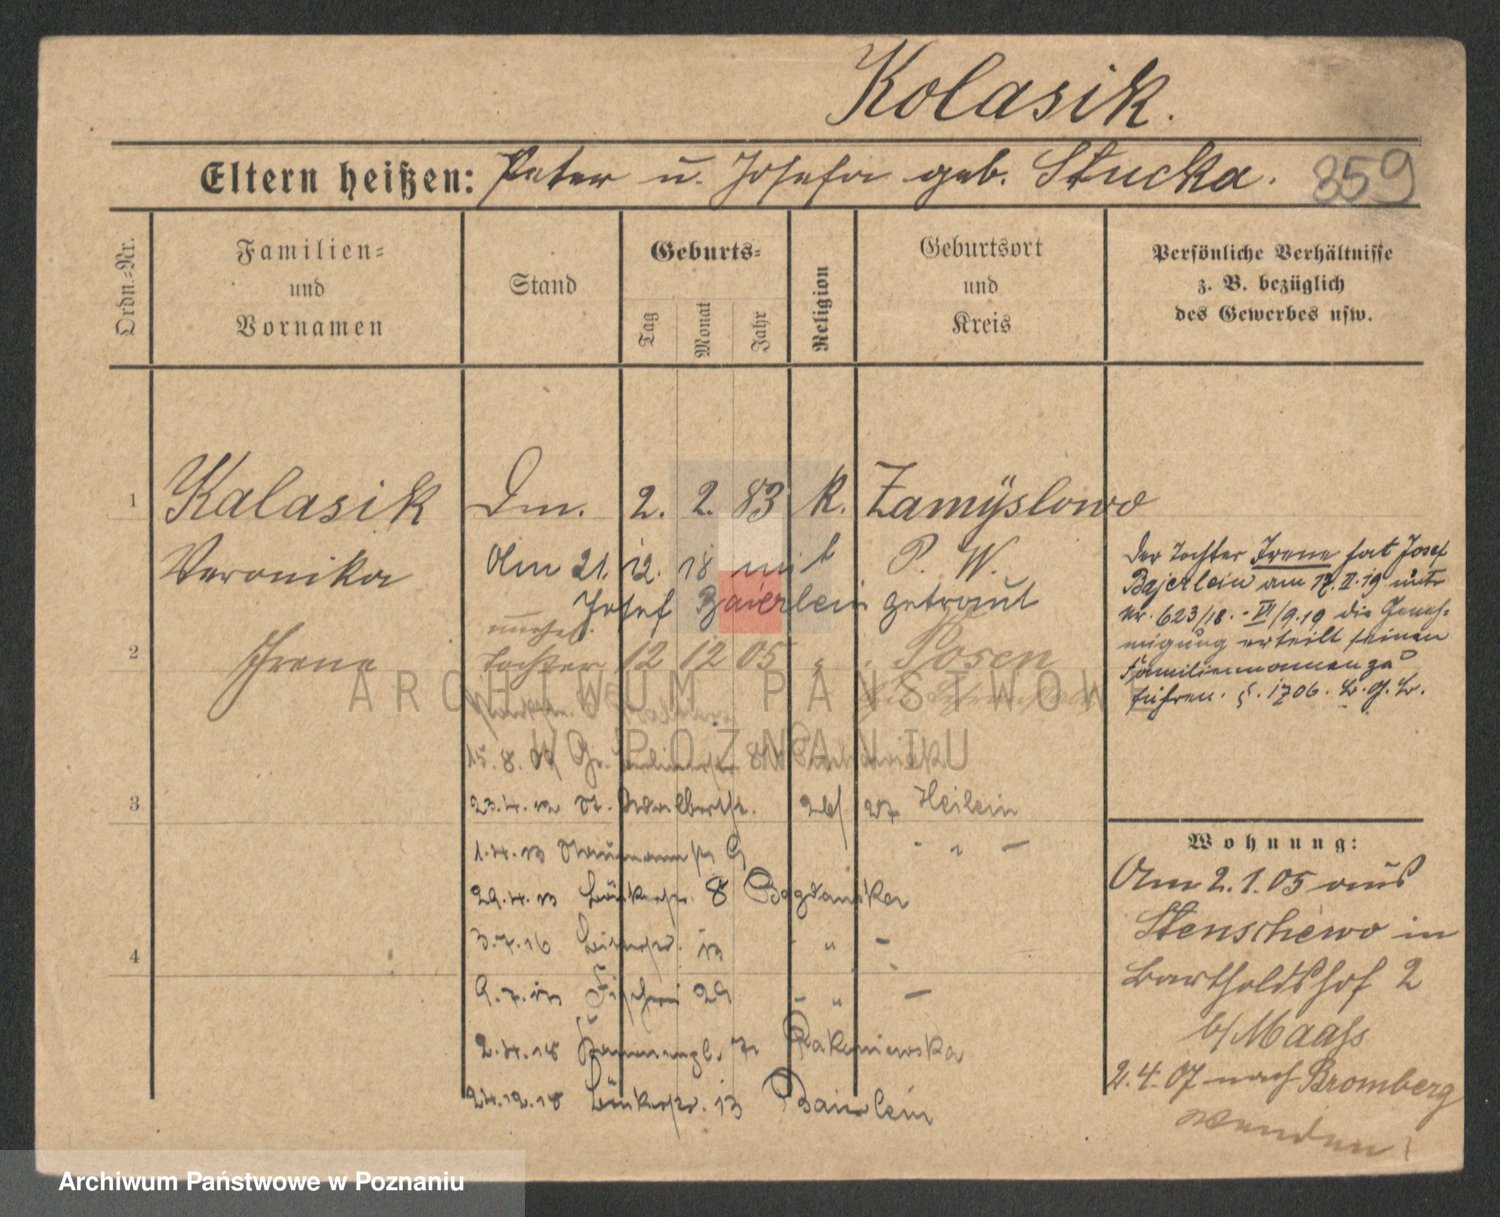 Kolasik.
Eltern heißen: Peter u. Josefa geb. Stucka. 359
Ordn.-Nr.
Familien-
und
Vornamen
Stand
Geburts-
Tag
Monat
Jahr
Religion
Geburtsort
und
Kreis
Persönliche Verhältnisse
z. B. bezüglich
des Gewerbes usw.
1 Kalasik Dm. 2. 2. 83 K. Zamÿslowo
Veronika P. W.
Am 21. 12. 18 mit
Josef Baierlein getraut
2 Irene Tochter 12 12 05 " Posen
15.8.09
3
23.4.12 26/27 Heilein
1.4.13 9 - " -
29.4.13 8 Bogdanska
4
3.7.16 13 " -
9.7.17 Fischerei 29 - " -
2.4.18 Rakuniewska
24.12.18 Bäckerstr. 13 Baierlein
Der Tochter Irene hat Josef
Bajerlein am 17.II.19 unter
Nr. 623/18. - VI/9.19 die Geneh-
migung erteilt seinen
Familiennamen zu
führen. §. 1706. B.G.B.
Wohnung:
Am 2.1.05 aus
Stenschewo in
Bartholdshof 2
b/Maass
2.4.07 nach Bromberg
wenden!
ARCHIWUM PAŃSTWOWE
W POZNANIU
Archiwum Państwowe w Poznaniu